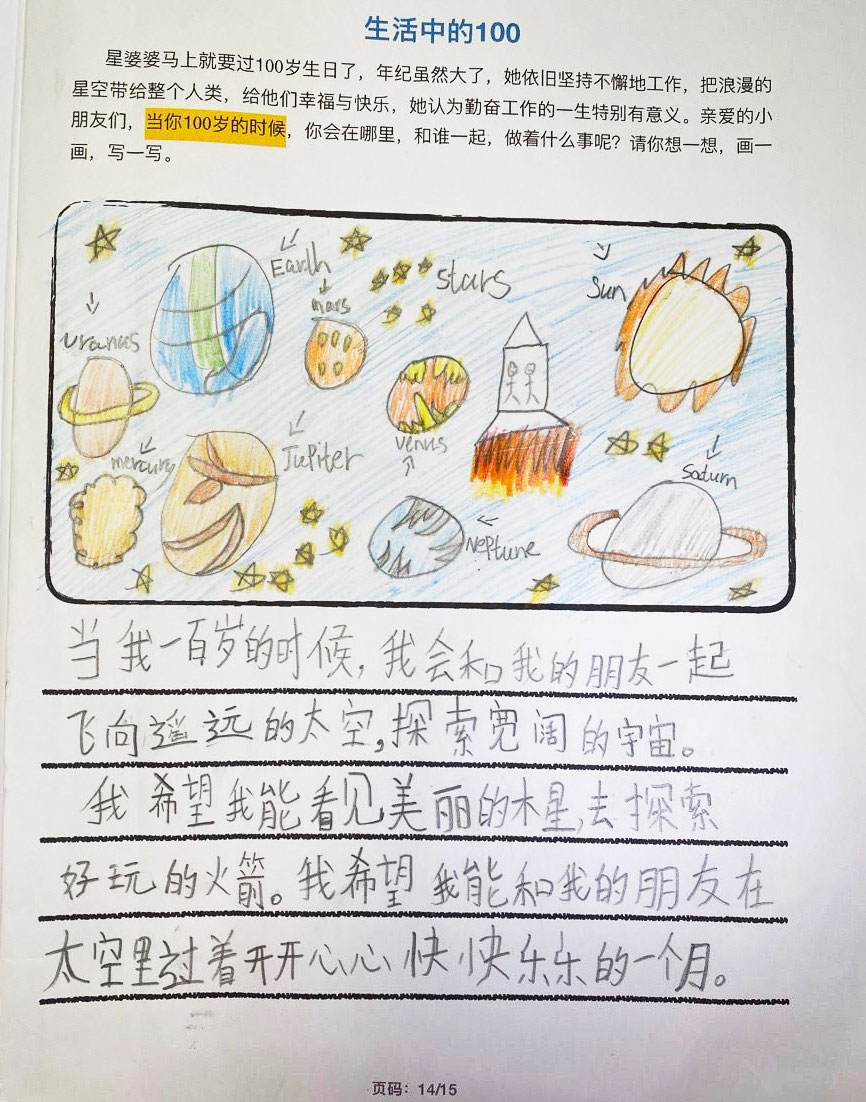 生活中的100
星婆婆马上就要过100岁生日了，年纪虽然大了，她依旧坚持不懈地工作，把浪漫的
星空带给整个人类，给他们幸福与快乐，她认为勤奋工作的一生特别有意义。亲爱的小
朋友们，当你100岁的时候，你会在哪里，和谁一起，做着什么事呢？请你想一想，画一
画，写一写。
Earth
stars
Sun
mars
Uranus
venus
mercury
Jupiter
Saturn
Neptune
当我一百岁的时候，我会和我的朋友一起
飞向遥远的太空，探索宽阔的宇宙。
我希望我能看见美丽的木星，去探索
好玩的火箭。我希望我能和我的朋友在
太空里过着开开心心快快乐乐的一个月。
页码：14/15